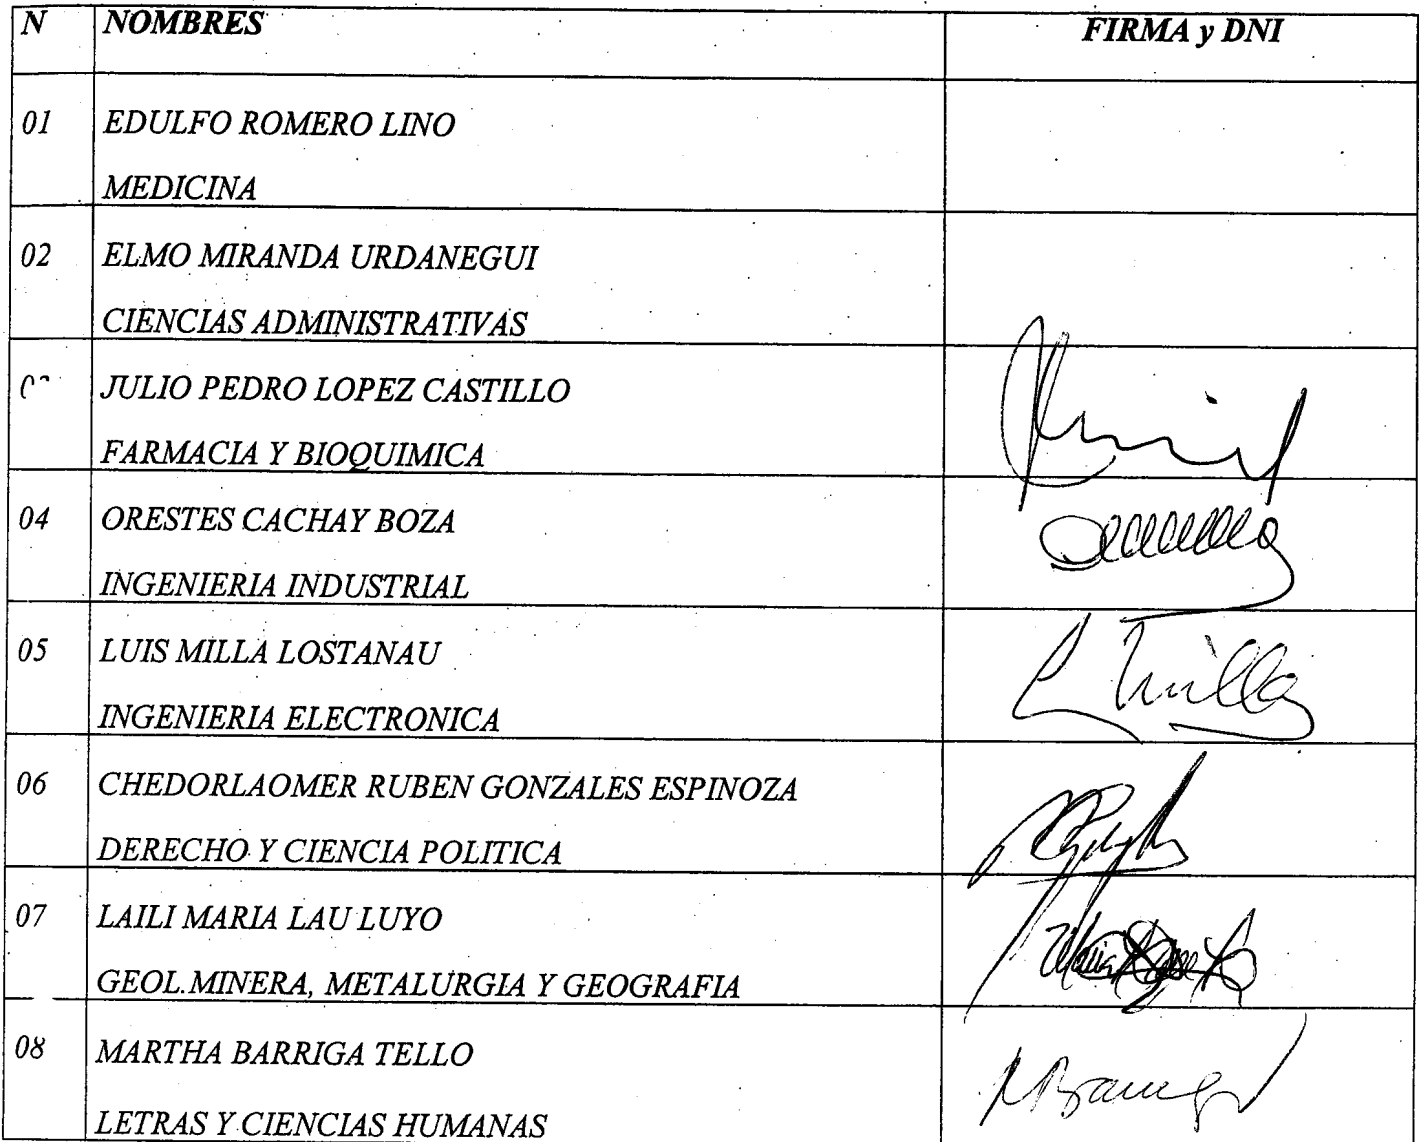 N NOMBRES FIRMA y DNI
01 EDULFO ROMERO LINO
MEDICINA
02 ELMO MIRANDA URDANEGUI
CIENCIAS ADMINISTRATIVAS
JULIO PEDRO LOPEZ CASTILLO
FARMACIA Y BIOQUIMICA
04 ORESTES CACHAY BOZA
INGENIERIA INDUSTRIAL
05 LUIS MILLA LOSTANAU
L Milla
INGENIERIA ELECTRONICA
06 CHEDORLAOMER RUBEN GONZALES ESPINOZA
DERECHO Y CIENCIA POLITICA
07 LAILI MARIA LAU LUYO
GEOL.MINERA, METALURGIA Y GEOGRAFIA
08 MARTHA BARRIGA TELLO
LETRAS Y CIENCIAS HUMANAS